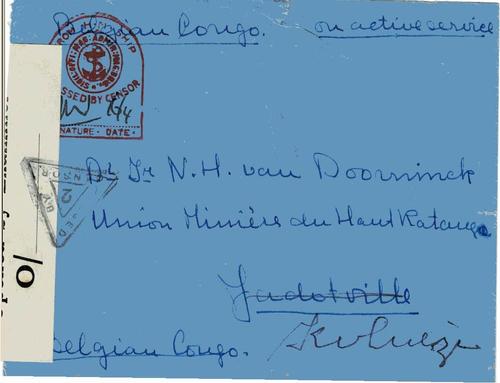 Belgian Congo. on active service
PASSED BY CENSOR
SIGNATURE - DATE -
Dr Ir N. H. van Doorninck
Union Minière du Haut Katanga
Jadotville
Belgian Congo. Kolwezi